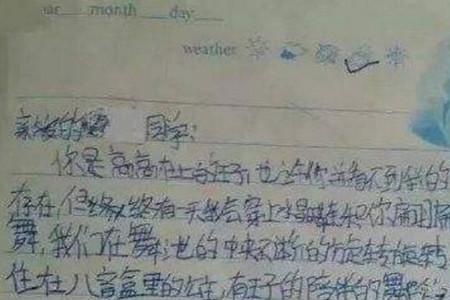 ear month day
weather
亲爱的 同学:
你是高高在上的王子,也许你并看不到我的
存在,但终有一天我会穿上水晶鞋和你翩翩
舞,我们在舞池的中央不断的旋转旋转
住在八音盒里的公主,有王子的陪伴的舞